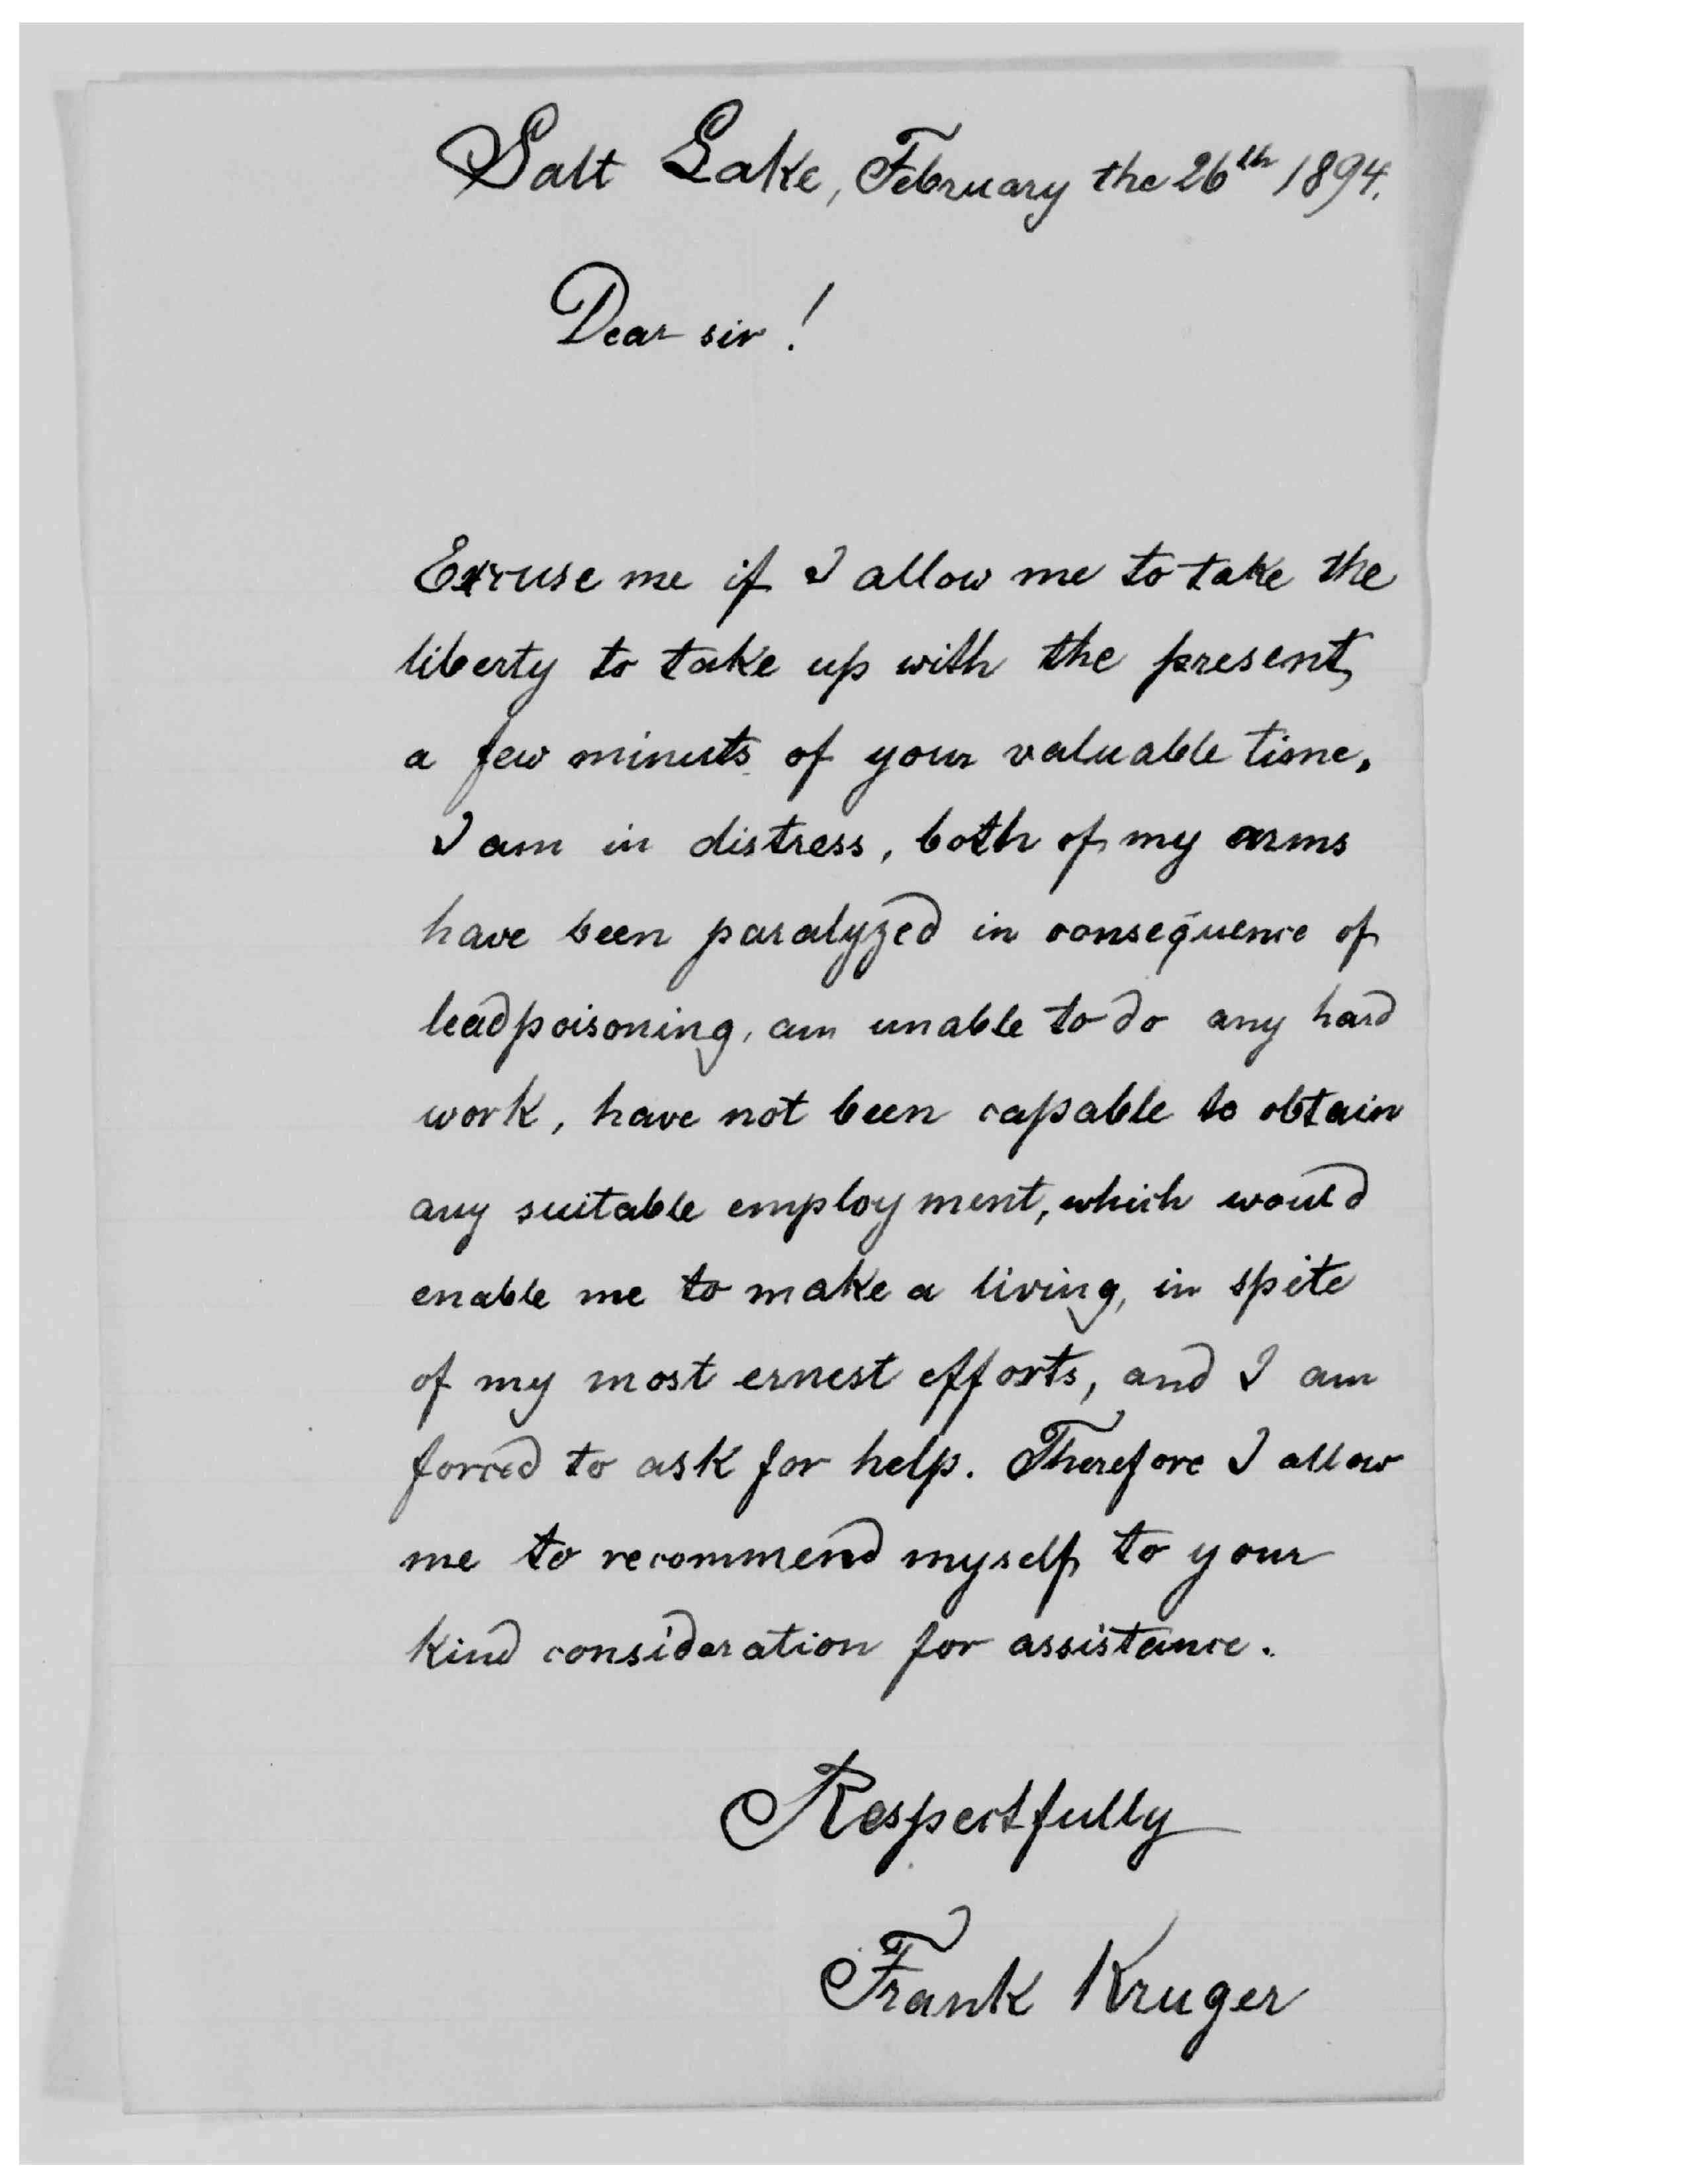 Salt Lake, February the 26th 1894.
Dear sir!
Excuse me if I allow me to take the
liberty to take up with the present,
a few minuts of your valuable time.
I am in distress, both of my arms
have been paralyzed in consequence of
leadpoisoning, am unable to do any hard
work, have not been capable to obtain
any suitable employment, which would
enable me to make a living, in spite
of my most ernest efforts, and I am
forced to ask for help. Therefore I allow
me to recommend myself to your
kind consideration for assistance.
Respectfully
Frank Kruger